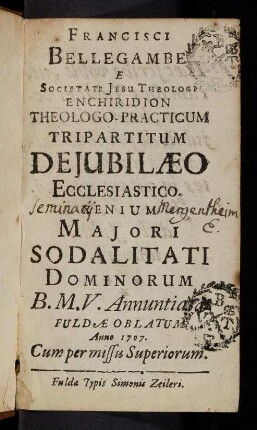 FRANCISCI
BELLEGAMBE
E
SOCIETATE JESU THEOLOGI
ENCHIRIDION
THEOLOGO-PRACTICUM
TRIPARTITUM
DE JUBILÆO
ECCLESIASTICO.
Seminarij
XENIUM
Mergentheim
MAJORI
SODALITATI
DOMINORUM
B. M. V. Annuntiatæ
FULDÆ OBLATUM
Anno 1707.
Cum permissu Superiorum.
Fuldæ Typis Simonis Zeileri.